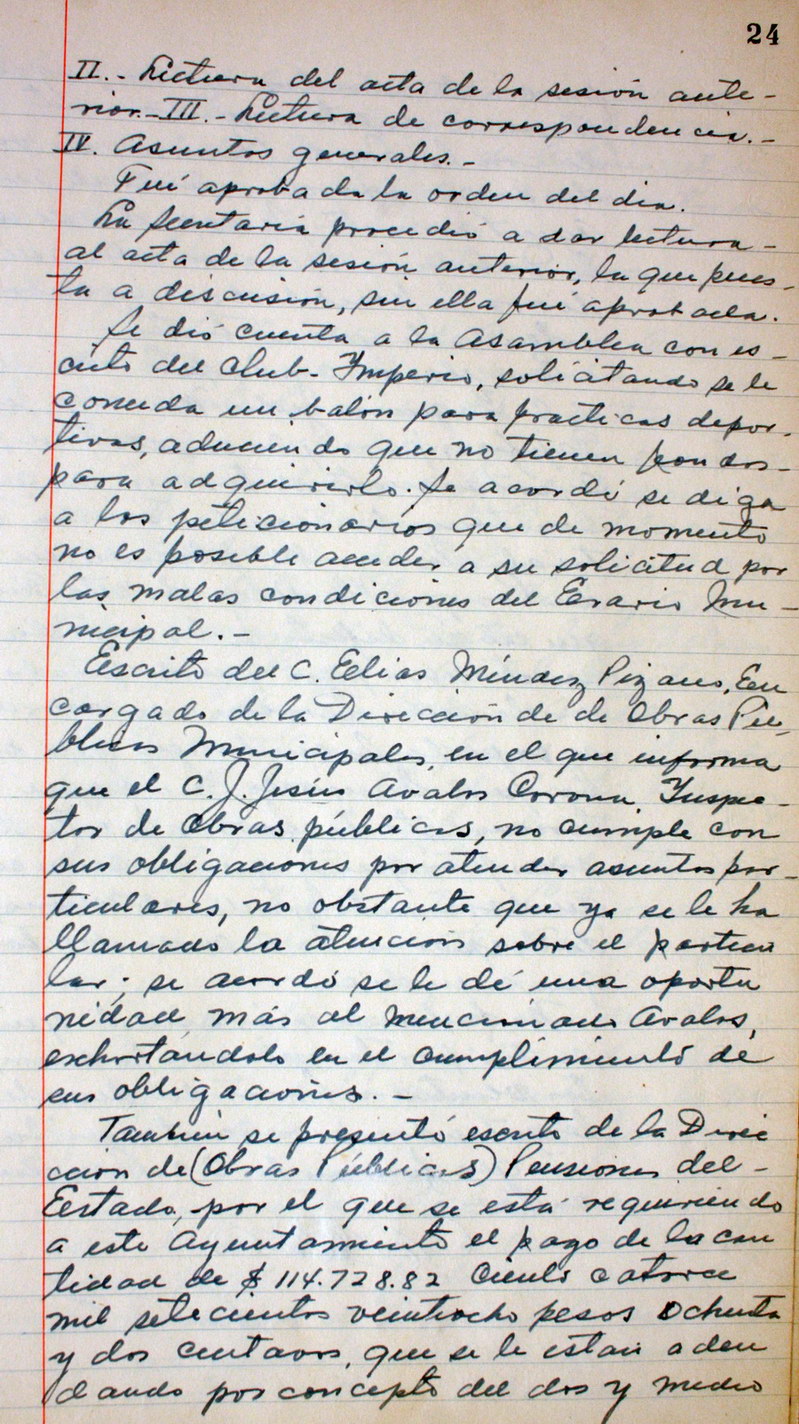 24
II.- Lectura del acta de la sesión ante-
rior.- III.- Lectura de correspondencia.-
IV. Asuntos generales.-
Fué aprobada la orden del dia.
La Secretaria procedió a dar lectura-
al acta de la sesión anterior, la que pues-
ta a discusión, sin ella fué aprobada.
Se dió cuenta a la Asamblea con es-
crito del Club- Imperio, solicitando se le
conceda un balón para practicas depor-
tivas, aduciendo que no tienen fondos-
para adquirirlo. Se acordó se diga
a los peticionarios que de momento
no es posible acceder a su solicitud por
las malas condiciones del Erario Mu-
nicipal.-
Escrito del C. Elias Méndez Pizano, En
cargado de la Dirección de de Obras Pú-
blicas Municipales, en el que informa
que el C. J. Jesús Avalos Corona, Inspec-
tor de Obras públicas, no cumple con
sus obligaciones por atender asuntos par-
ticulares, no obstante que ya se le ha
llamado la atención sobre el particu
lar; se acordó se le dé una oportu
nidad más al mencionado Avalos,
exhortandolo en el cumplimiento de
sus obligaciones.-
También se presentó escrito de la Direc
ción de (Obras Públicas) Pensiones del-
Estado, por el que se está requiriendo
a este Ayuntamiento el pago de la can
tidad de $ 114.728.82 Ciento catorce
mil setecientos veintiocho pesos ochenta
y dos centavos, que se le estan adeu
dando por concepto del dos y medio